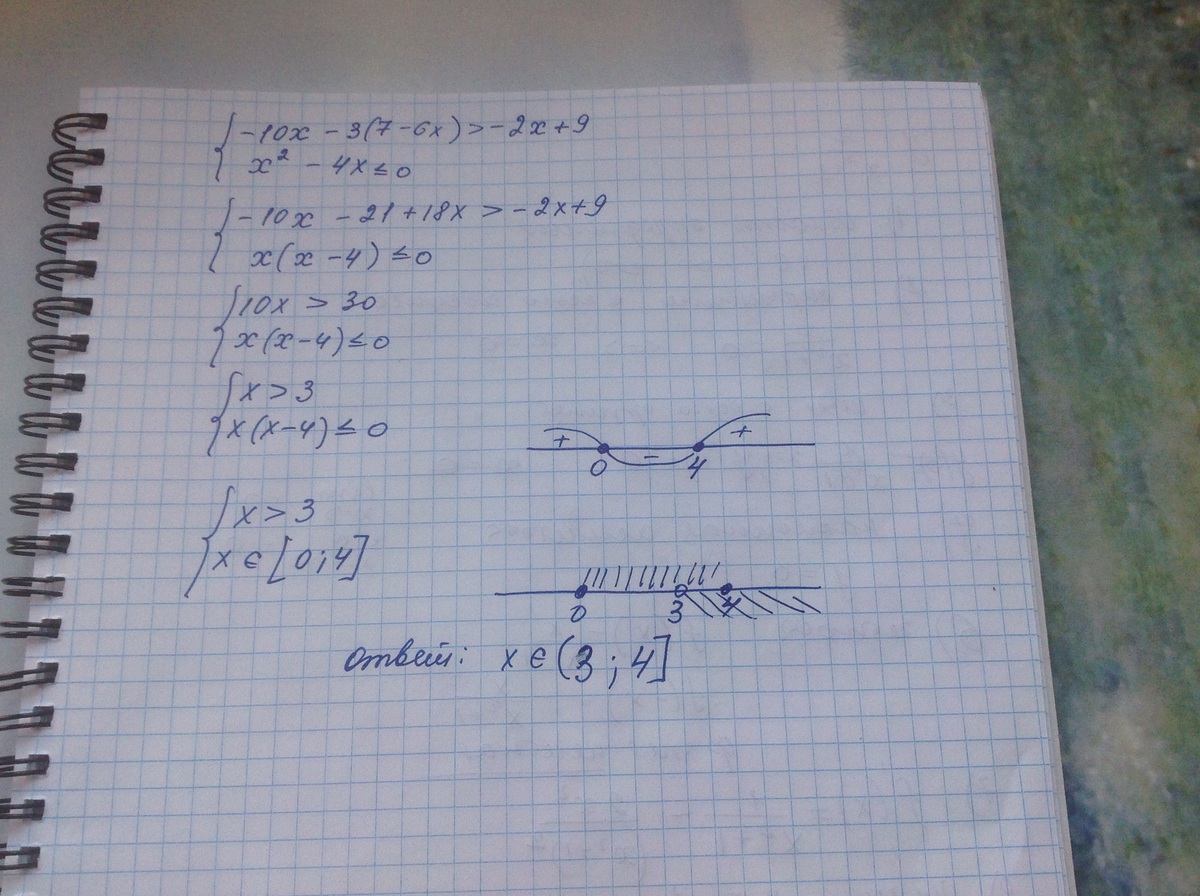 -10x - 3(7-6x) > -2x+9
x² - 4x ≤ 0
-10x - 21+18x > -2x+9
x(x-4) ≤ 0
10x > 30
x(x-4) ≤ 0
x > 3
x(x-4) ≤ 0
+ - +
0 4
x > 3
x ∈ [0;4]
0 3 4
Ответ: x ∈ (3;4]